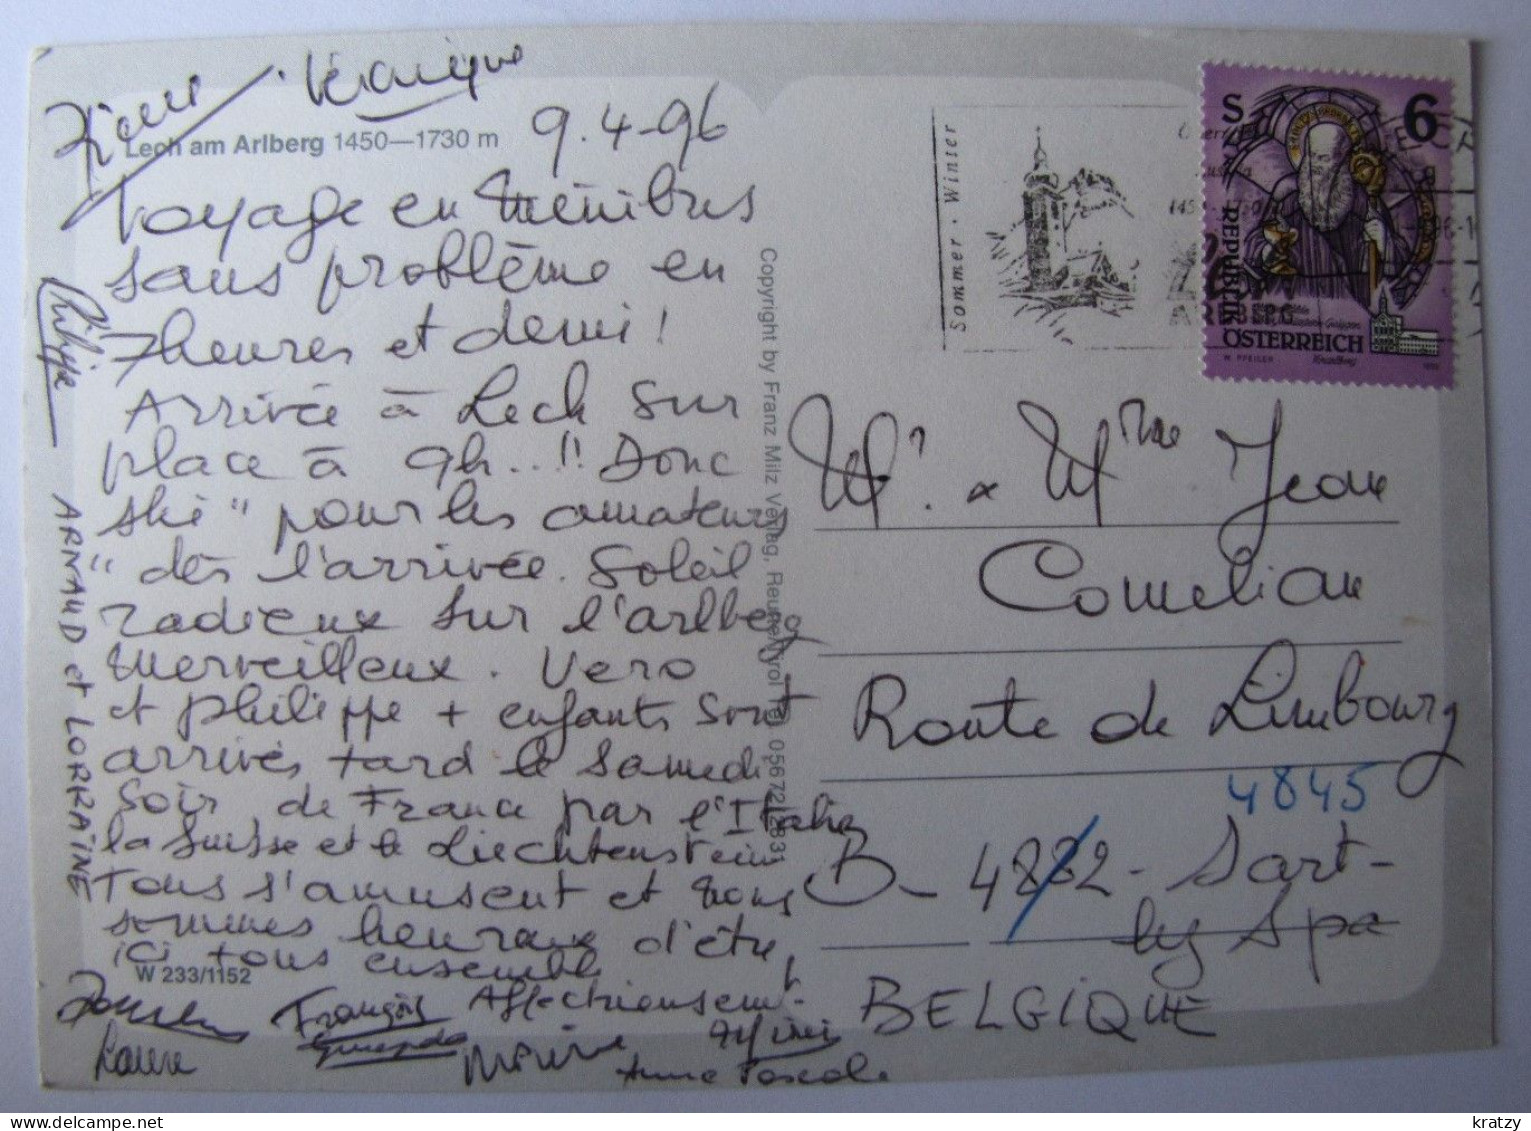 Véronique
Lech am Arlberg 1450—1730 m
9.4-96
Voyage en minibus
sans problème en
7heures et demi!
Arrivée à Lech sur
place à 9h..!! Donc
ski " pour les amateurs
" dès l'arrivée. Soleil
radieux sur l'arlberg
merveilleux. Vero
et philippe + enfants sont
arrivés tard le samedi
soir de France par l'Italie
la Suisse et le Liechtenstein
Tous s'amusent et nous
sommes heureux d'être
ici tous ensemble
W 233/1152
Affectueusement.
François
Laure
Anne Pascale
Philippe
ARNAUD et LORRAÎNE
Copyright by Franz Milz Verlag, Reutte/Tirol Tel. 05672/2831
Sommer · Winter
ARLBERG
S 6
REPUBLIK
ÖSTERREICH
W. PFEILER
Mr. & Mme Jean
Cornelian
Route de Limbourg
4845
B- 4882 - Sart-
lez Spa
BELGIQUE
kratzy